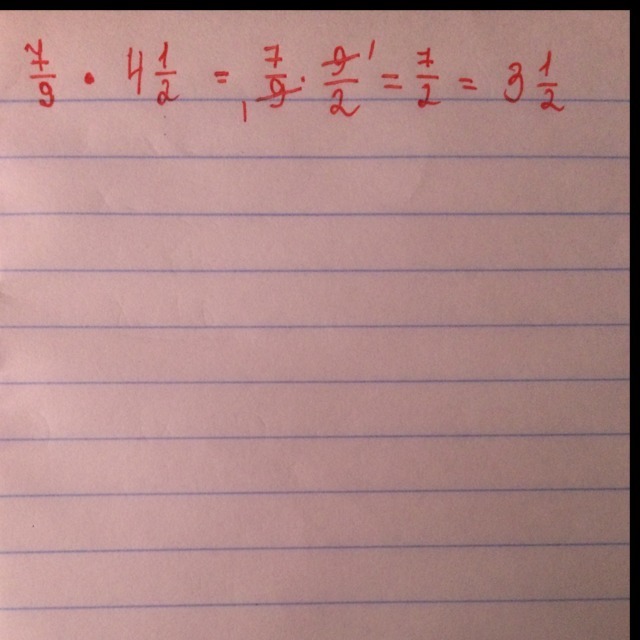 7/9 · 4 1/2 = 7/9 1 · 9/2 1 = 7/2 = 3 1/2